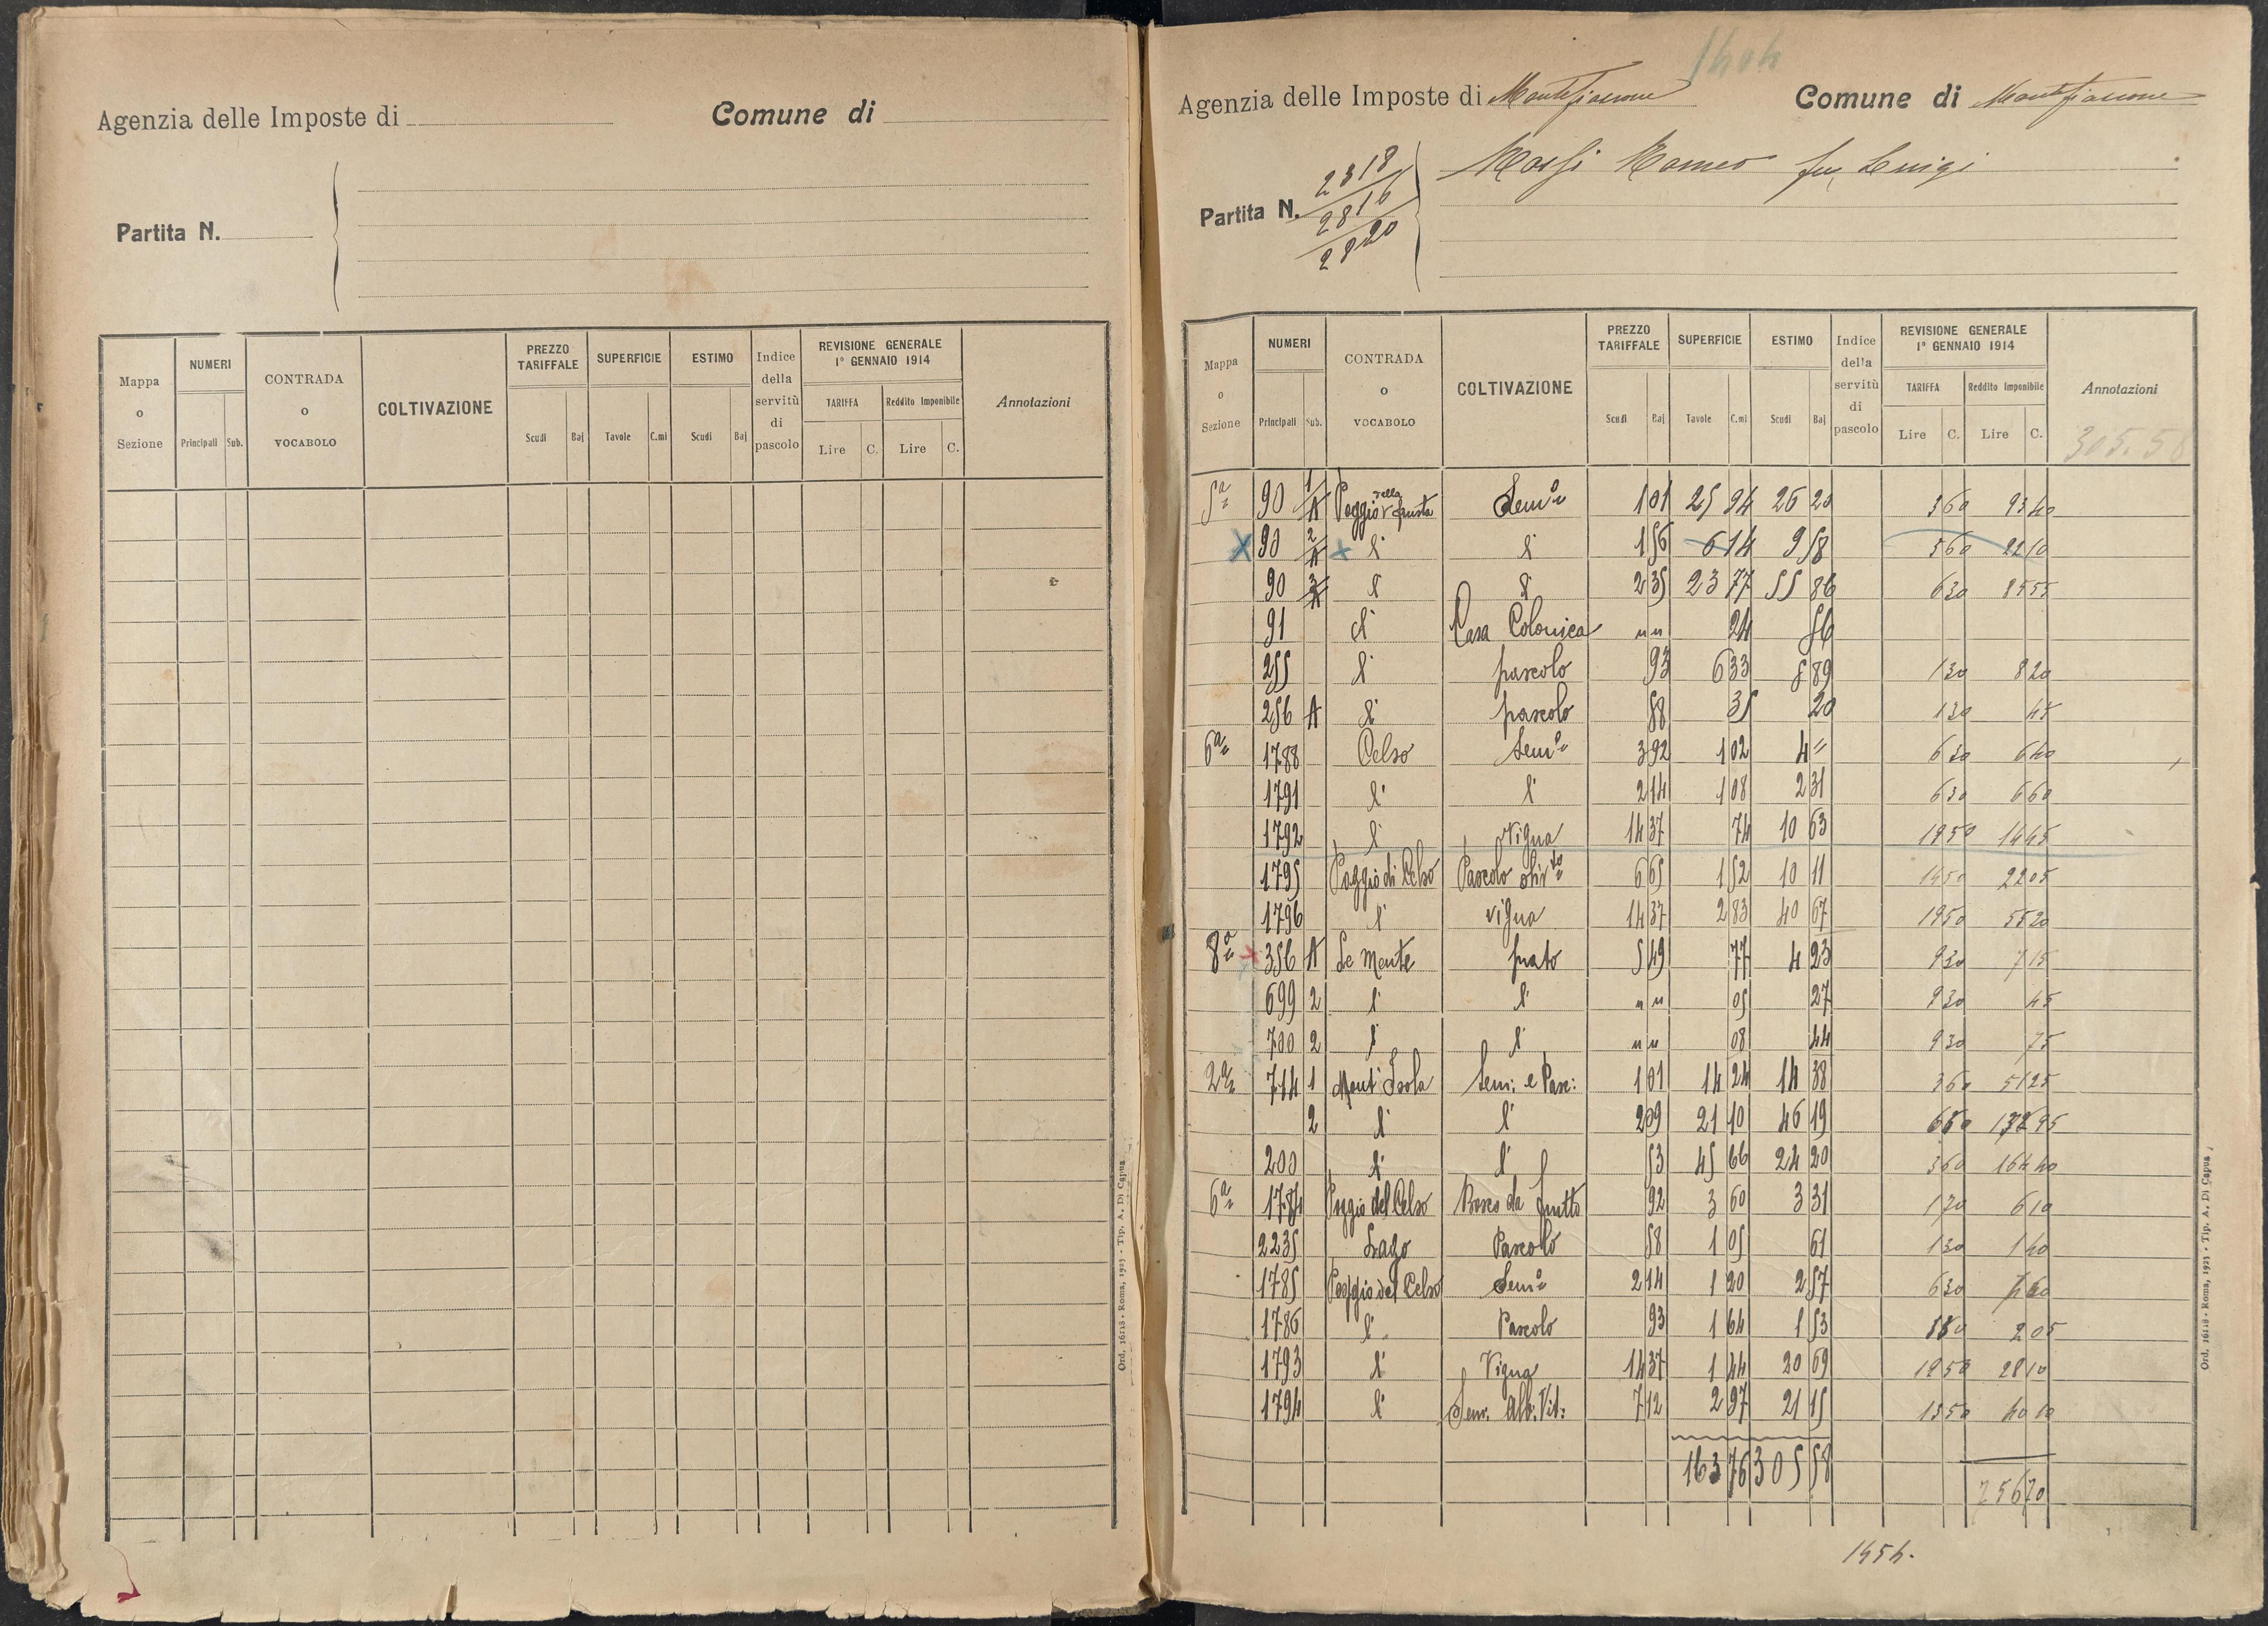 Agenzia delle Imposte di
Comune di
Partita N.
Mappa o Sezione | NUMERI Principali Sub. | CONTRADA o VOCABOLO | COLTIVAZIONE | PREZZO TARIFFALE Scudi Baj | SUPERFICIE Tavole C.mi | ESTIMO Scudi Baj | Indice della servitù di pascolo | REVISIONE GENERALE 1° GENNAIO 1914 TARIFFA Lire C. Reddito Imponibile Lire C. | Annotazioni
Ord. 16118 - Roma, 1923 - Tip. A. Di Capua
1404
Agenzia delle Imposte di Montefiascone Comune di Montefiascone
Partita N. 2318 2816 2820
Romeo fu Luigi
Mappa o Sezione | NUMERI Principali Sub. | CONTRADA o VOCABOLO | COLTIVAZIONE | PREZZO TARIFFALE Scudi Baj | SUPERFICIE Tavole C.mi | ESTIMO Scudi Baj | Indice della servitù di pascolo | REVISIONE GENERALE 1° GENNAIO 1914 TARIFFA Lire C. Reddito Imponibile Lire C. | Annotazioni
305.58
5a 90 1/A Poggio della frusta Semo 1 01 25 94 26 20 3 60 93 40
X 90 2/A x d' d' 1 56 6 14 9 58 3 60 22 10
90 3/A d' d' 2 35 23 77 55 86 6 30 85 55
91 d' Casa Colonica " " 24 56
255 d' pascolo 93 6 33 5 89 1 30 8 20
256 A d' pascolo 58 35 20 1 30 45
6a 1788 Celso Semo 3 92 1 02 4 " 6 30 6 40
1791 d' d' 2 14 1 08 2 31 6 30 6 60
1792 d' Vigna 14 37 74 10 63 19 50 14 45
1795 Poggio di Celso Pascolo olivto 6 65 1 52 10 11 14 50 22 05
1796 d' vigna 14 37 2 83 40 67 19 50 55 20
8a x 356 A Le Mente prato 5 49 77 4 23 9 30 7 15
699 2 d' d' " " 05 27 9 30 45
700 2 d' d' " " 08 44 9 30 75
2a 714 1 Mont' Isola Sem: e Pasc: 1 01 14 24 14 38 3 60 51 25
2 d' d' 2 09 21 10 46 19 95
200 d' d' 53 45 66 24 20 3 60 164 40
6a 1784 Poggio del Celso Bosco da frutto 92 3 60 3 31 1 70 6 10
2235 Lago Pascolo 58 1 05 61 1 30 1 40
1785 Poggio del Celso Semo 2 14 1 20 2 57 6 30 7 60
1786 d' Pascolo 93 1 64 1 53 2 05
1793 d' Vigna 14 37 1 44 20 69 19 50 28 10
1794 d' Sem. Alb. Vit: 7 12 2 97 21 15 13 50 40 10
163 76 305 58
256 20
1454.
Ord. 16118 - Roma, 1923 - Tip. A. Di Capua